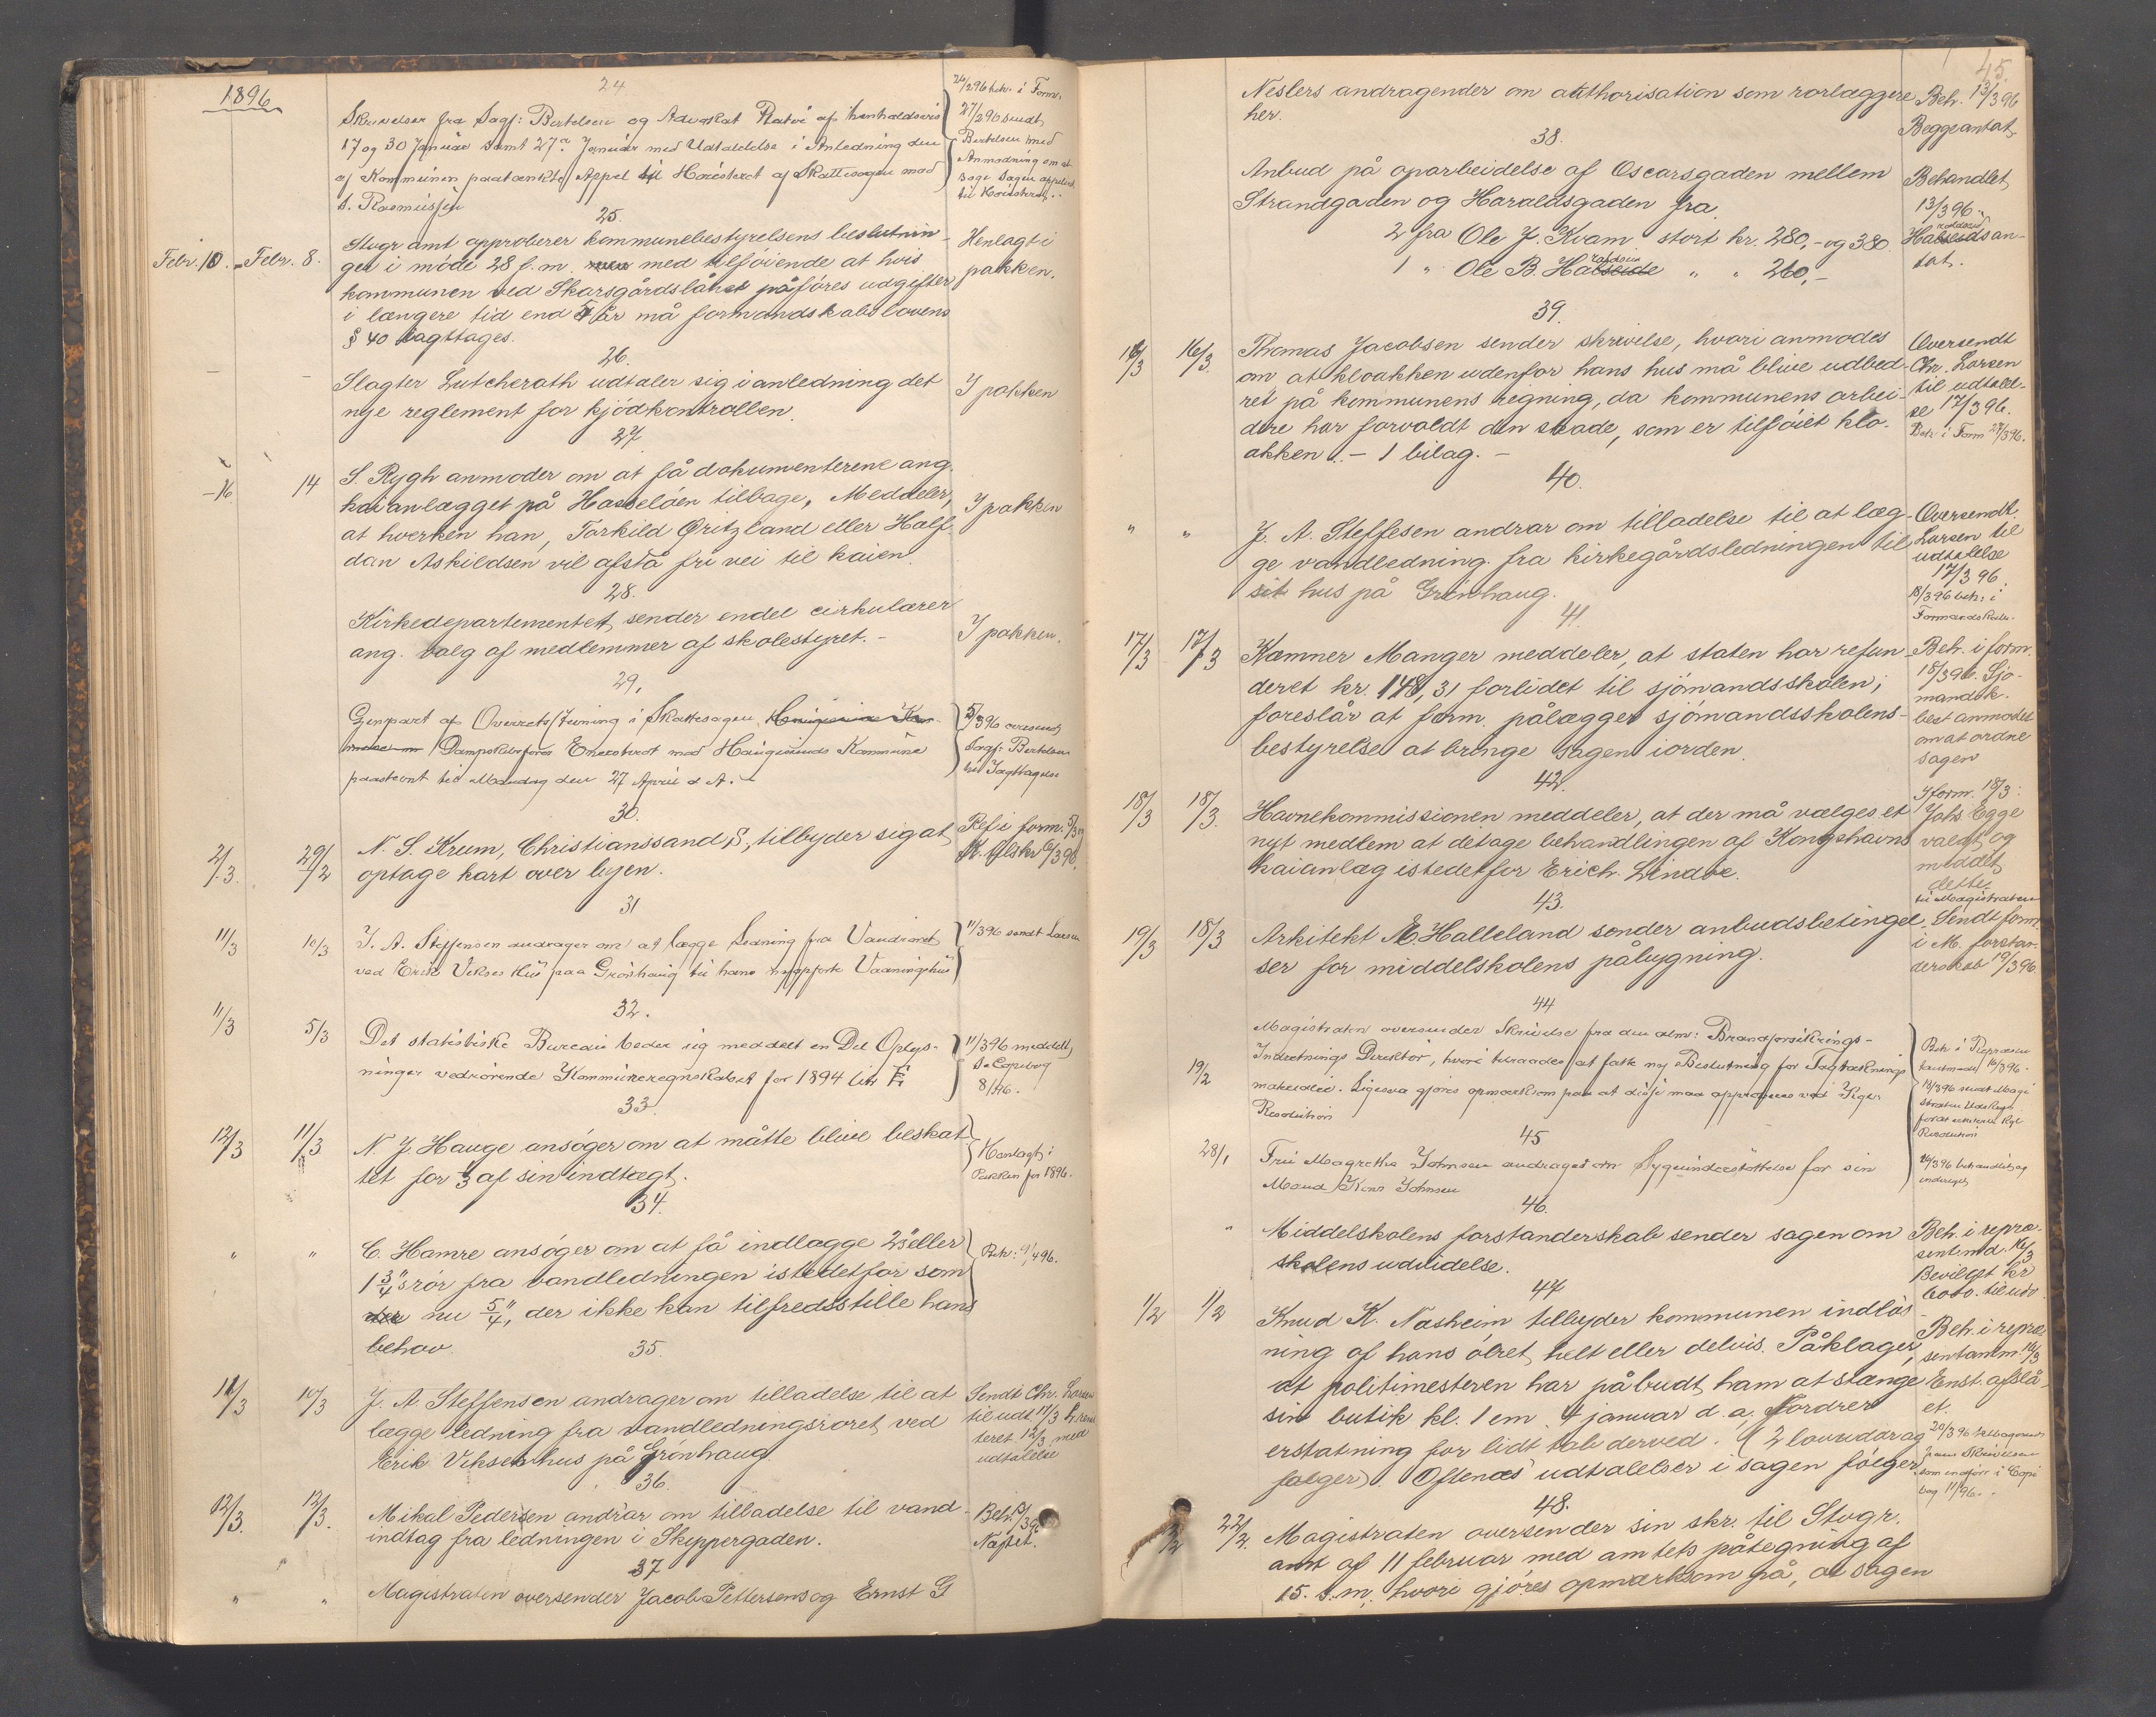 1896
24.
26/2 96 beh. i Form.
Skrivelser fra Sagf: Bertelsen og Advokat Platou af henholdsvis
17 og 30 Januar samt 27de Januar med Udtalelse i Anledning den
af Kommunen paatænkte Appel til Høiesteret af Skattesagen mod
S. Rasmussen
27/3 96 sendt
Bertelsen med
Anmodning om at
sage Sagen appelleret
til Høiesteret.
25.
Febr. 10. Febr. 8.
Stvgr amt approberer kommunebestyrelsens beslutnin-
ger i möde 28 f. m. med tilföiende at hvis
kommunen ved Skarsgårdslånet påföres udgifter
i længere tid end 5 år må formandskabslovens
§ 40 iagttages.
Henlagt i
pakken.
26.
- -
Slagter Lutcherath udtaler sig i anledning det
nye reglement for kjödkontrollen.
I pakken
27
- 16 14
S. Rygh anmoder om at få dokumenterne ang.
kaianlægget på Hasselöen tilbage. Meddeler,
at hverken han, Torkild Qritzland eller Half-
dan Askildsen vil afstå fri vei til kaien.
I pakken
28.
Kirkedepartementet sender endel cirkulærer
ang. valg af medlemmer af skolestyret. -
I pakken.
29.
Genpart af Overretsstevning i Skattesagen
Dampskibsfører Enerstvedt mod Haugesunds Kommune
paastevnt til Mandag den 27 April d. A. -
5/3 96 oversendt
Sagf: Bertelsen
til Iagttagelse
30.
2/3. 29/2
N. S. Krum, Christianssand S, tilbyder sig at
optage kart over byen.
Ref i form. 5/3
31
11/3 10/3
J. A. Steffensen andrager om at lægge Ledning fra Vandrøret
ved Erik Vikses Hus paa Grønhaug til hans nyopførte Vaaningshus
11/3 96 sendt Larsen
32.
11/3 5/3
Det statistiske Bureau beder sig meddelt en Del Oplys-
ninger vedrørende Kommuneregnskabet for 1894 Litr F
11/3 96 meddelt
se Copibog
8/96.
33.
12/3 11/3
N. J. Hauge ansöger om at måtte blive beskat-
tet for 3 af sin indtægt.
Henlagt i
Pakken for 1896.
34.
" "
C. Hamre ansöger om at få indlægge 2" eller
1 3/4" rör fra vandledningen istedetfor som
nu 5/4", der ikke kan tilfredsstille hans
behov.
Beh: 9/4 96.
35.
11/3 10/3
J. A. Steffensen andrager om tilladelse til at
lægge ledning fra vandledningsröret ved
Erik Vikses hus på Grönhaug
Sendt Chr. Larsen
til udt. 11/3
teret 12/3 med
udtalelse
36.
12/3. 12/3.
Mikal Pedersen andrar om tilladelse til vand-
indtag fra ledningen i Skippergaden.
Beh. 13/3 96
Nægtet.
37
" "
Magistraten oversender Jacob Pettersens og Ernst G
45.
Neslers andragender om authorisation som rörlæggere
her.
Beh. 13/3 96
Begge antat.
38.
Anbud på oparbeidelse af Oscarsgaden mellem
Strandgaden og Haraldsgaden fra
2 fra Ole J. Kvam stort kr. 280,- og 380
1 " Ole B. Halseide " " 260,-
Behandlet
13/3 96.
an-
tat.
39.
16/3 16/3.
Thomas Jacobsen sender skrivelse, hvori anmodes
om at kloakken udenfor hans hus må blive udbed-
ret på kommunens regning, da kommunens arbei-
dere har forvoldt den skade, som er tilföiet klo-
akken. - 1 bilag. -
Oversendt
Chr. Larsen
til udtalel-
se 17/3 96.
Beh. i Form 27/3 96.
40.
" "
J. A. Steffesen andrar om tilladelse til at læg-
ge vandledning fra kirkegårdsledningen til
sit hus på Grönhaug.
Oversendt
Larsen til
udtalelse
17/3 96.
18/3 96 beh. i
Formandskabet.
41.
17/3 17/3
Kæmner Manger meddeler, at staten har refun-
deret kr. 148,31 forlidet til sjömandsskolen;
foreslår at form. pålægger sjömandsskolens-
bestyrelse at bringe sagen iorden.
Beh. i form.
18/3 96. Sjö-
mandsk.
best anmodet
om at ordne
sagen
42.
18/3 18/3.
Havnekommissionen meddeler, at der må vælges et
nyt medlem at deltage behandlingen af Kongshavns
kaianlæg istedetfor Erich Lindöe.
I form. 18/3:
Johs Egge
valgt og
meddelt
dette
til Magistraten
43.
19/3 18/3
Arkitekt E Halleland sender anbudsbetingel-
ser for middelskolens påbygning.
Sendt form.
i M. forstan-
derskab 19/3 96
44
19/2
Magistraten oversender Skrivelse fra den alm: Brandforsikrings-
Indretnings Direktør, hvori tilraades at fatte ny Beslutning for Tagtæknings
materialie. Ligesaa gjøres opmærksom paa at disse maa approberes ved Kgl.
Resolution
Beh. i Repræsen
tantmøde 16/3 96.
18/3 96 sendt Magi
straten Udskrift
for at erhverve Kgl
Resolution
45
28/1
Fru Magrethe Johnsen andrager om Sygeunderstøttelse for sin
Mand Knut Johnsen
behandlet og
indvilget
46.
"
Middelskolens forstanderskab sender sagen om
skolens udvidelse.
Beh. i repræ-
sentmd. 16/3
Bevilget kr
til udv.
47
1/2 1/2
Knud K. Nasheim tilbyder kommunen indlös-
ning af hans ölret, helt eller delvis. Påklager,
at politimesteren har påbudt ham at stænge
sin butik kl. 1 em 4 januar d. a. Fordrer
erstatning for lidt tab derved. (2 lovuddrag
fölger). Oftenæs' udtalelser i sagen fölger.
Beh. i repræ
sentantm. 16/3
Enst. afslå-
et.
48.
22/2.
Magistraten oversender sin skr. til Stvgr.
amt af 11 februar med amtets påtegning af
15. s. m., hvori gjöres opmærksom på, at sagen